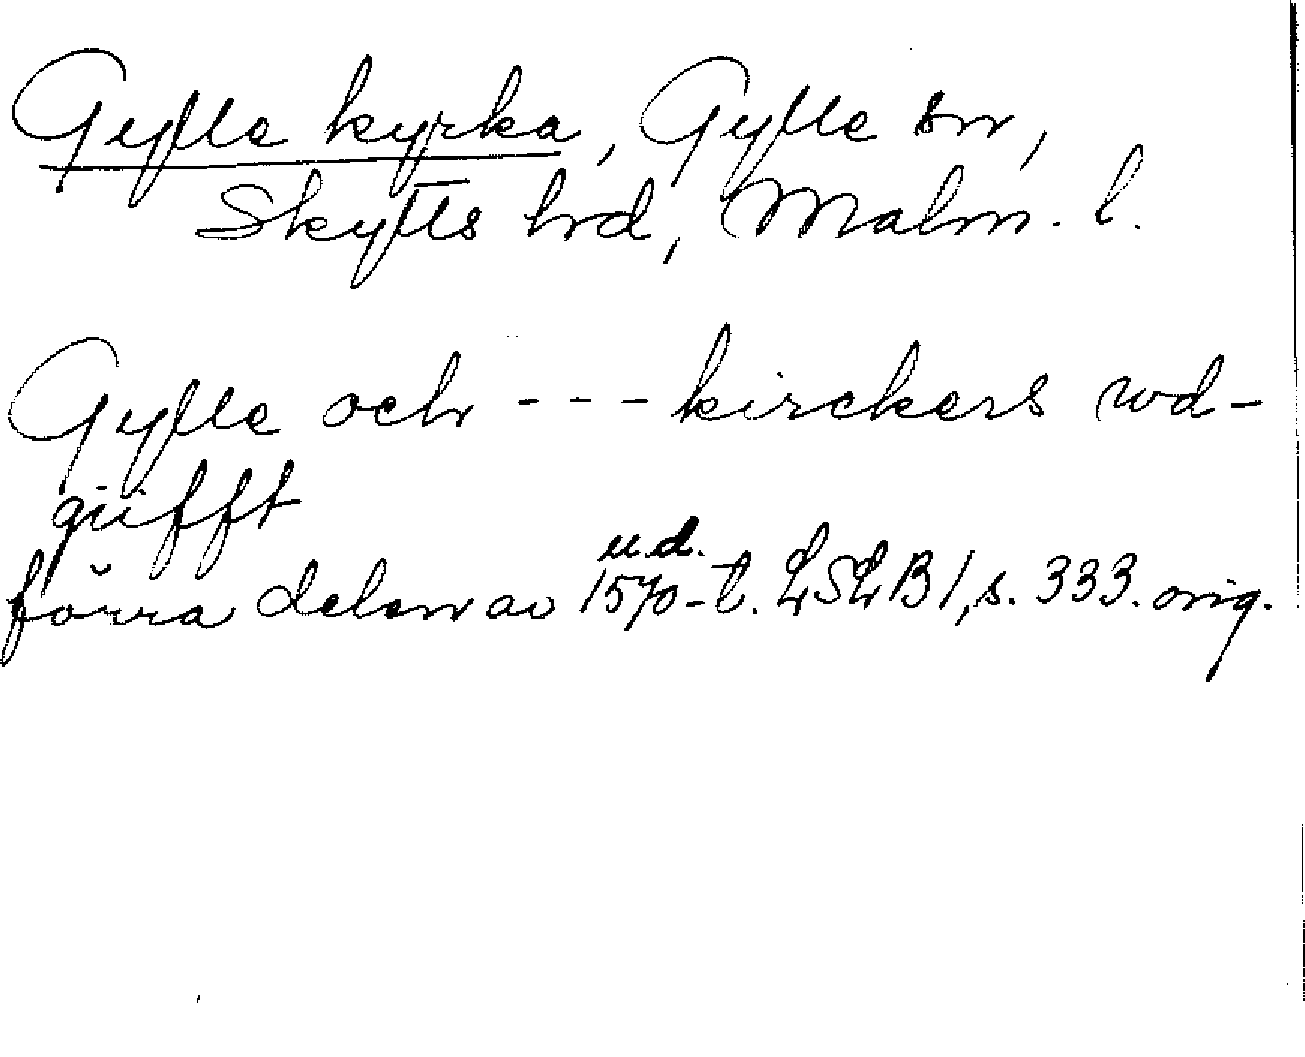 Gylle kyrka, Gylle sn,
Skytts hd, Malm. l.
Gylle och --- kirckers wd-
güfft
förra delen av 1570-t. LSLB1, s. 333. orig.
u.d.